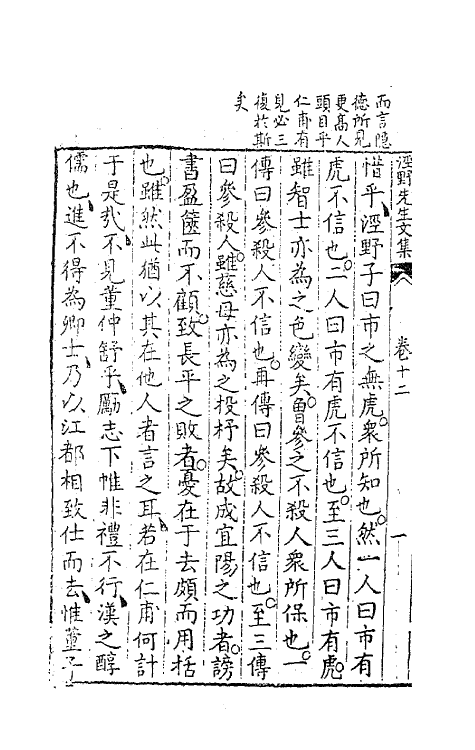 而言隠
德所見
更髙人
頭目乎
仁甫有
見必三
復於斯
矣
涇野先生文集 卷十二 一
惜乎涇野子曰市之無虎衆所知也然一人曰市有
虎不信也二人曰市有虎不信也至三人曰市有虎
雖智士亦為之色變矣曾參之不殺人衆所保也一
傳曰參殺人不信也再傳曰參殺人不信也至三傳
曰參殺人雖慈母亦為之投杼矣故成宜陽之功者謗
書盈篋而不顧致長平之敗者憂在于去頗而用括
也雖然此猶以其在他人者言之耳若在仁甫何計
于是哉不見董仲舒乎勵志下帷非禮不行漢之醇
儒也進不得為卿士乃以江都相致仕而去惟董子